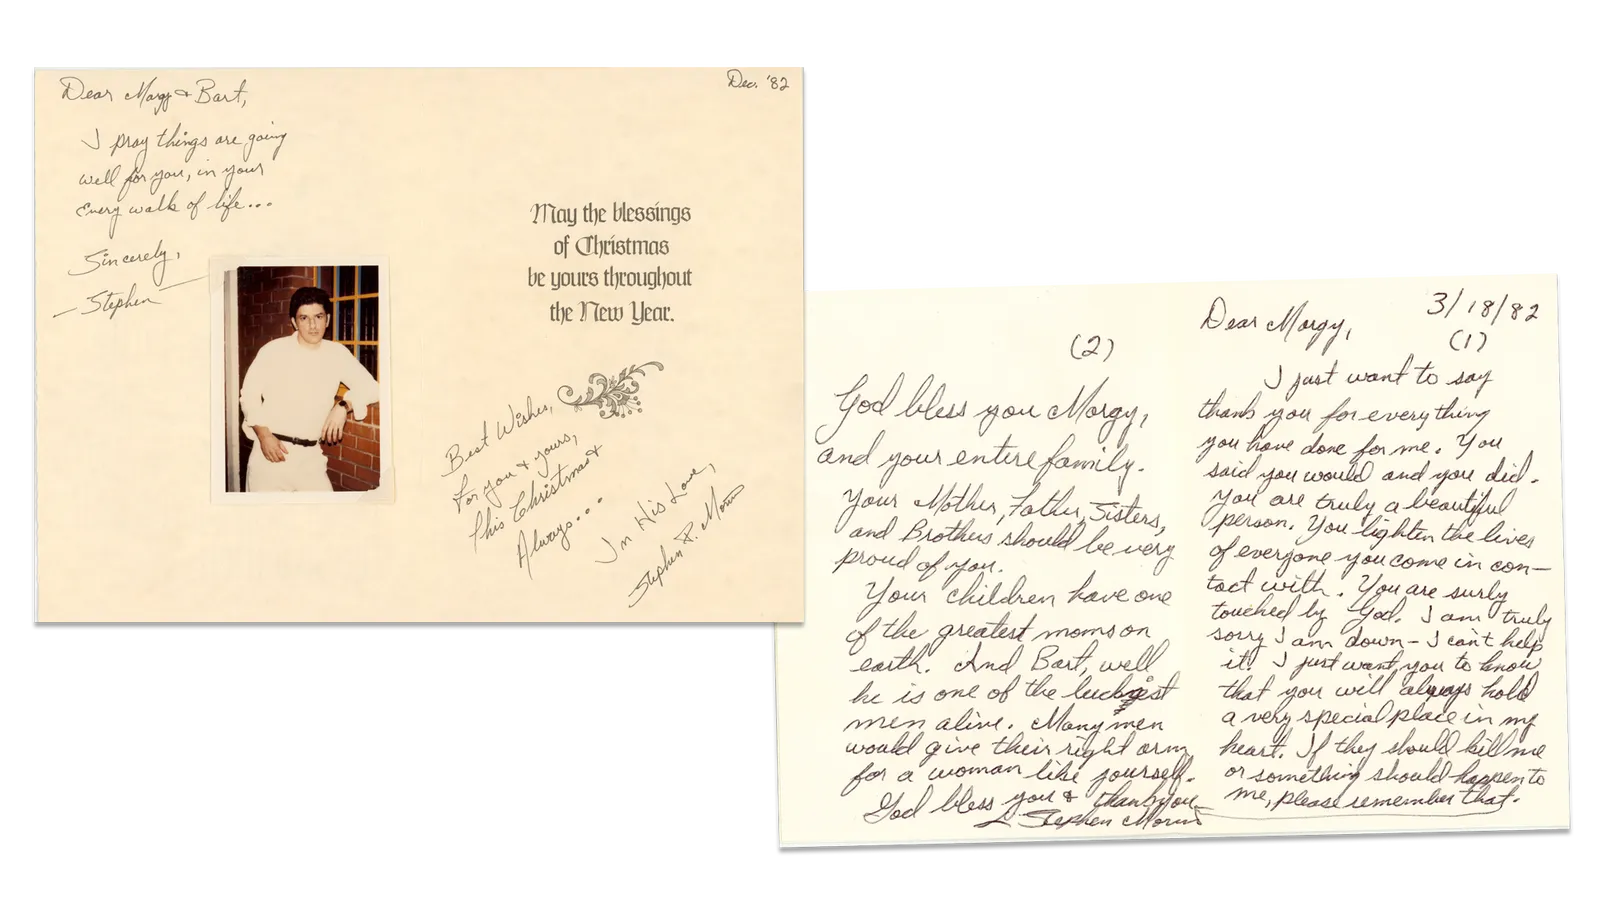 Dear Margy & Bart,
I pray things are going
well for you, in your
Every walk of life...
Sincerely,
— Stephen —
Dec. '82
May the blessings
of Christmas
be yours throughout
the New Year.
Best Wishes,
For you & yours,
this Christmas &
Always...
In His Love,
Stephen P. Morin
3/18/82
Dear Margy,
(1)
I just want to say
thank you for everything
you have done for me. You
said you would and you did.
You are truly a beautiful
person. You lighten the lives
of everyone you come in con-
tact with. You are surly
touched by God. I am truly
sorry I am down - I can't help
it. I just want you to know
that you will always hold
a very special place in my
heart. If they should kill me
or something should happen to
me, please remember that.
(2)
God bless you Margy,
and your entire family.
Your Mother, Father, Sisters,
and Brothers should be very
proud of you.
Your children have one
of the greatest moms on
earth. And Bart, well
he is one of the luckiest
men alive. Many men
would give their right arm
for a woman like yourself.
God bless you & thank you
Stephen Morin